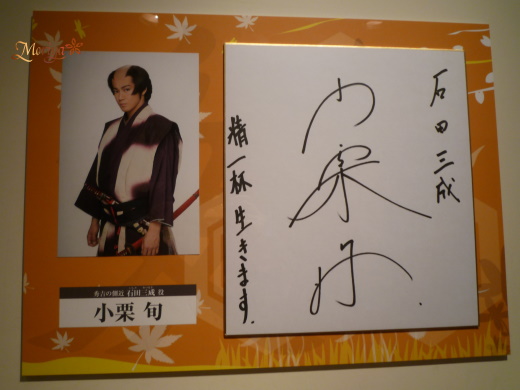 石田三成
小栗旬
精一杯生きます.
秀吉の側近 石田三成 役
小栗 旬